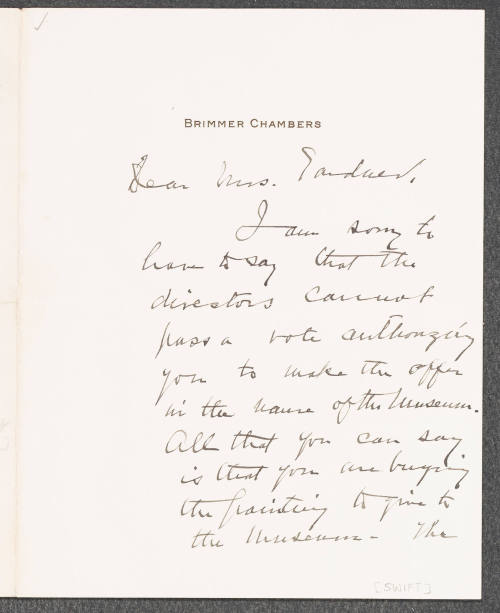 BRIMMER CHAMBERS
Dear Mrs. Gardner,
I am sorry to
have to say that the
directors cannot
pass a vote authorizing
you to make the offer
in the name of the Museum.
All that you can say
is that you are buying
the painting to give to
the Museum - The
[SWIFT]